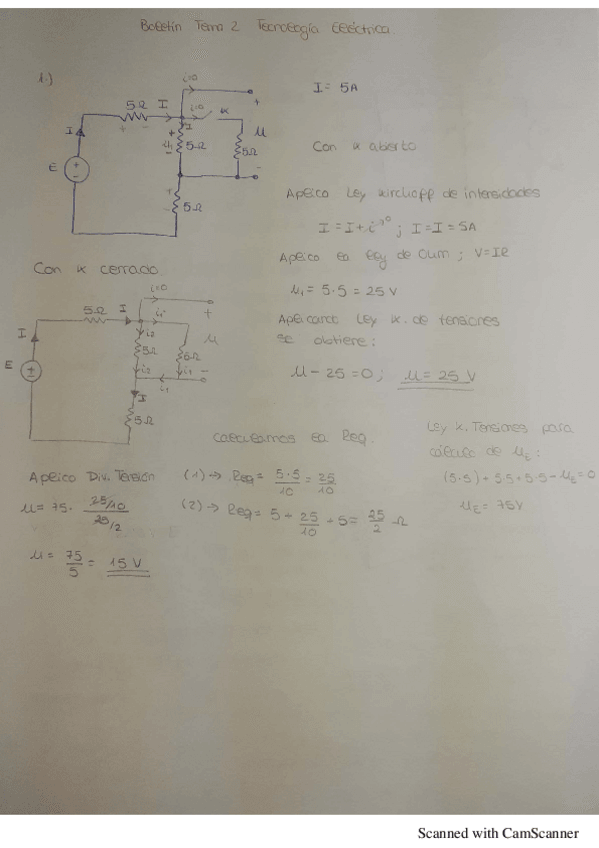 Boletín Tema 2 Tecnología Eléctrica
1.)
I = 5A
i=0
5Ω I i=0 K
+ -
I
+ I +
u₁ 5Ω u 5Ω
- -
E
+
5Ω
-
Con K abierto
Aplico Ley Kirchoff de intensidades
I = I + i⁰ ; I = I = 5A
Aplico la Ley de Oum ; V=IR
u₁ = 5·5 = 25 V
Aplicando Ley K. de tensiones
se obtiene:
u - 25 = 0 ; u = 25 V
Con K cerrado
i=0
5Ω I i₁ +
I i₂ u
5Ω 5Ω
E i₂ i₁ -
i₁
I
5Ω
Calculamos la Req.
(1) → Req = 5·5/10 = 25/10
(2) → Req = 5 + 25/10 + 5 = 25/2 Ω
Ley K. Tensiones para
cálculo de uE:
(5·5) + 5·5 + 5·5 - uE = 0
uE = 75V
Aplico Div. Tensión
u = 75 · 25/10 / 25/2
u = 75/5 = 15 V
Scanned with CamScanner